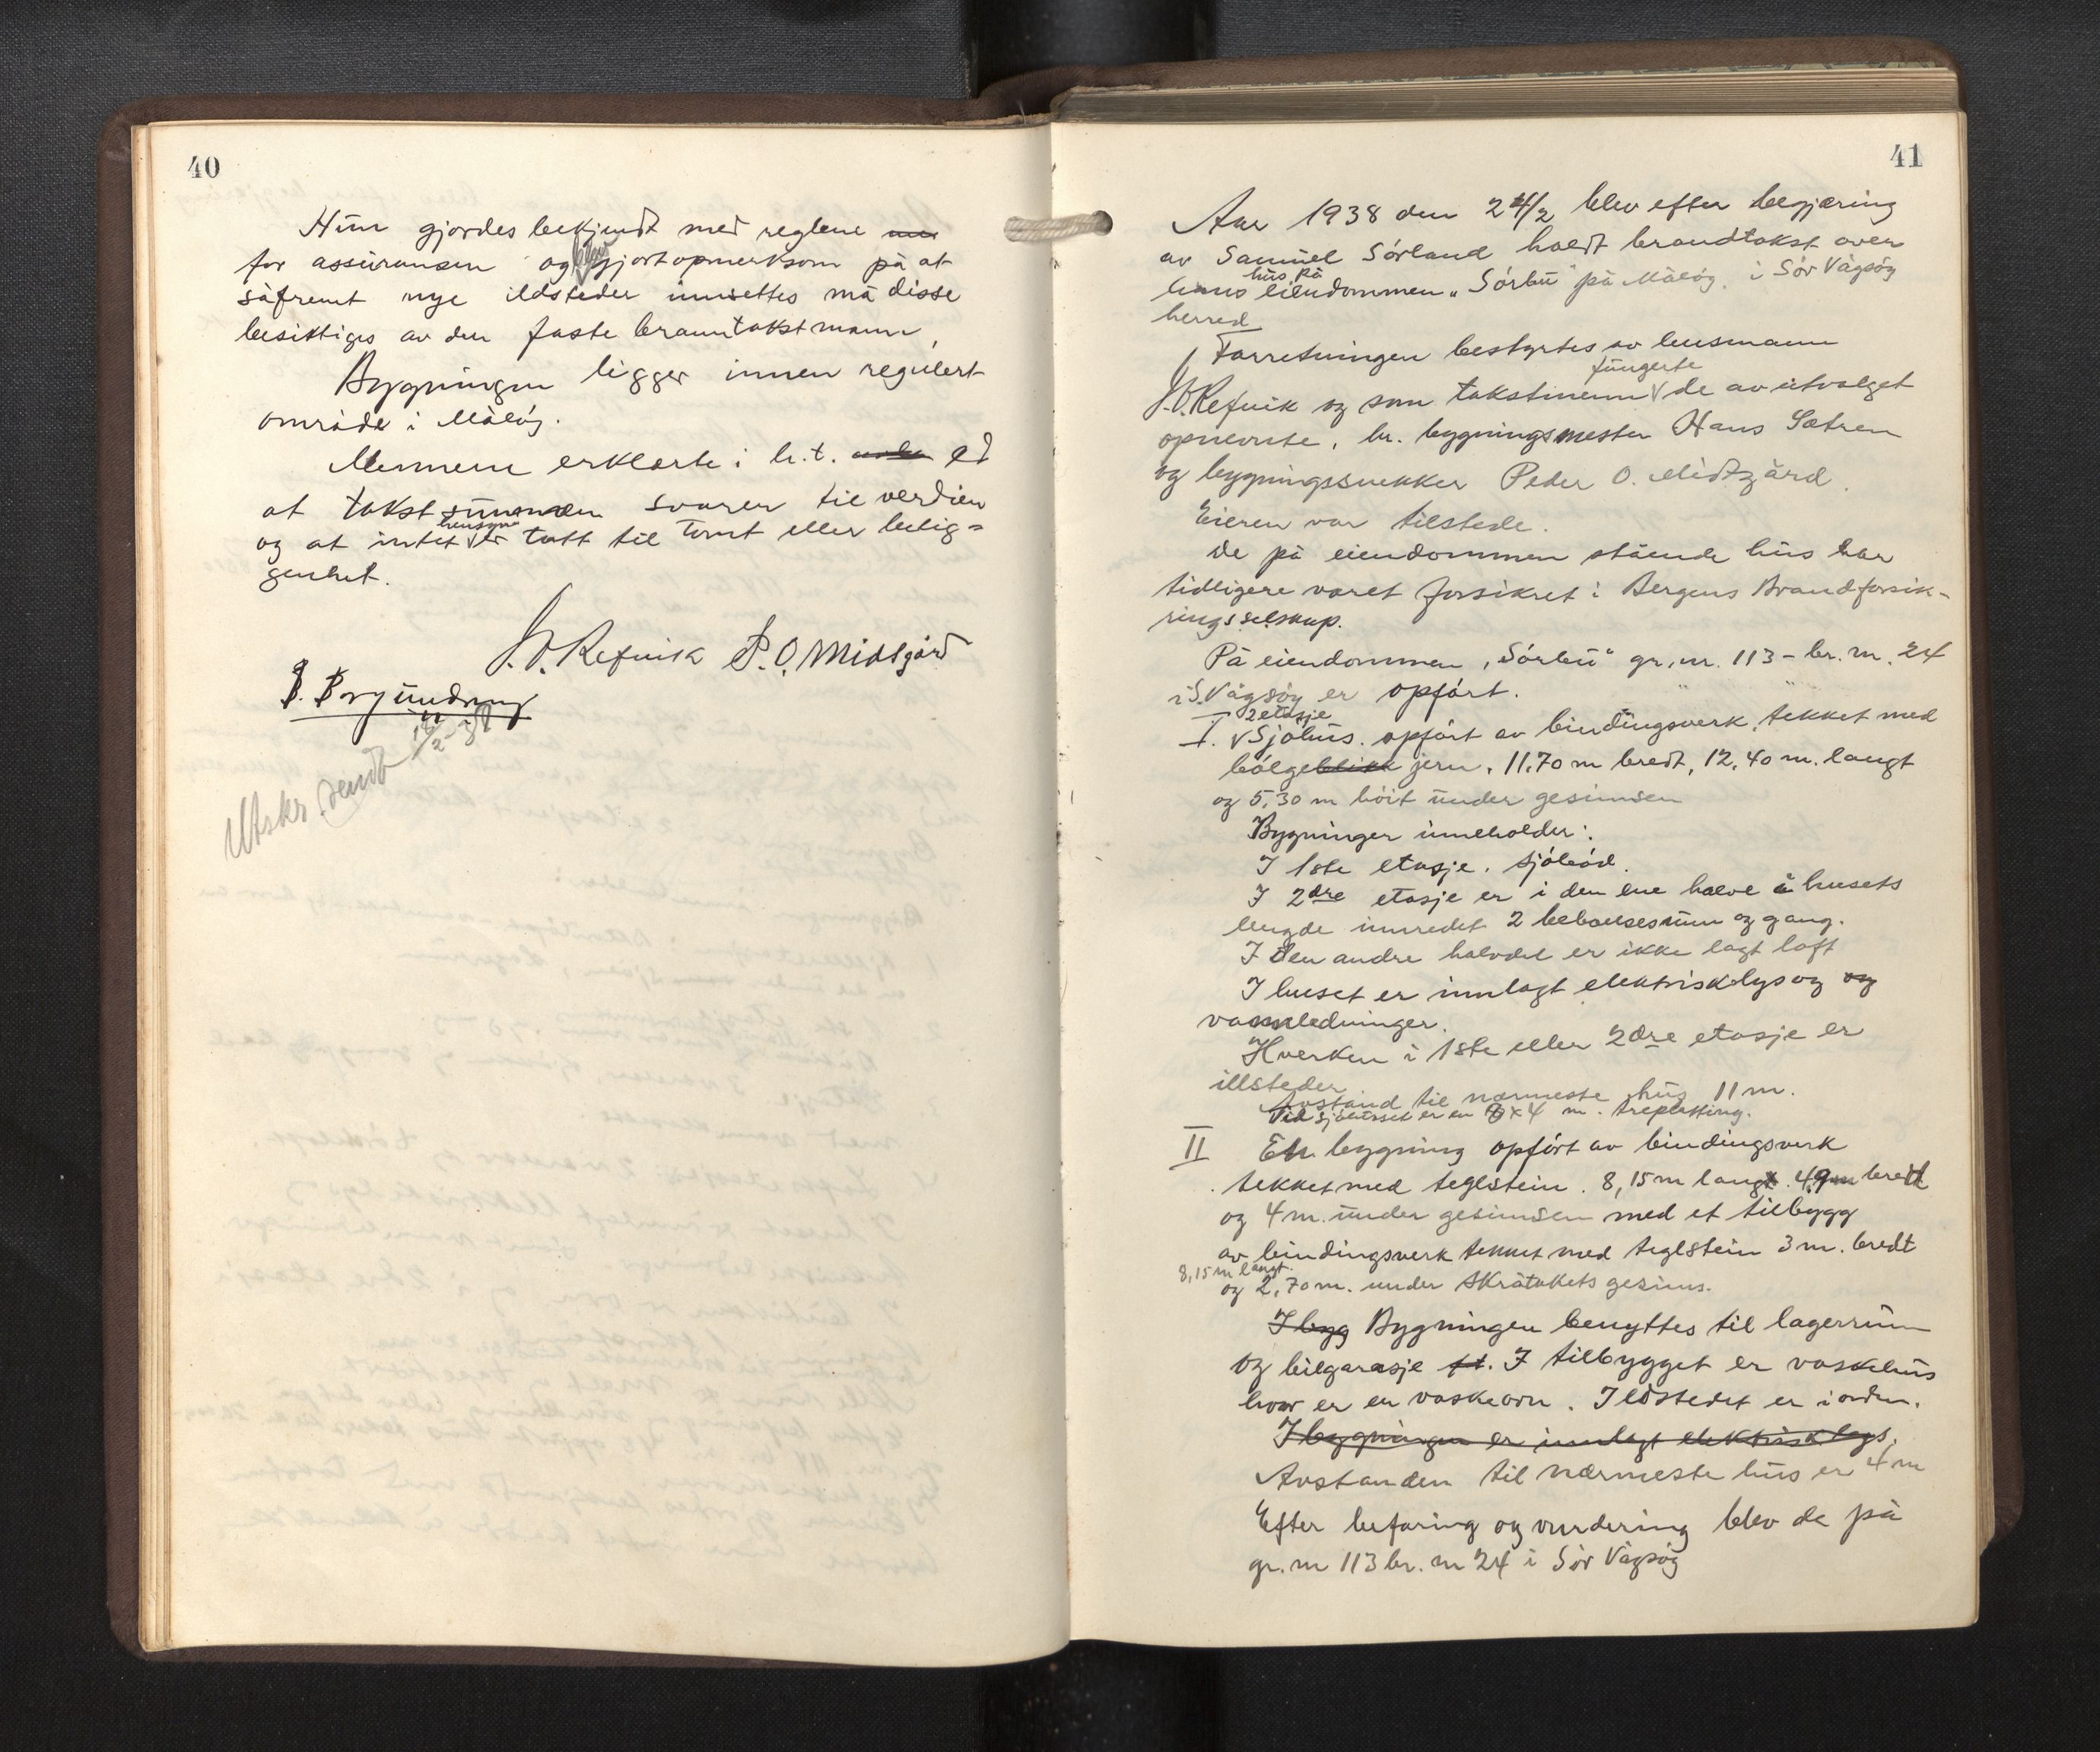 40
Hun gjordes bekjendt med reglene
for assuransen og blev gjort opmerksom på at
såfremt nye ildsteder innsettes må disse
besiktiges av den faste branntakstmann,
Bygningen ligger innen regulert
område i Måløy.
Mennene erklærte i h.t. ed
at takstsummen svarer til verdien
og at intet hensyn er tatt til tomt eller belig=
genhet.
J. O. Refvik P. O. Midtgård
Utskr. sendt 18/2-38
41
Aar 1938 den 24/2 blev efter begjæring
av Samuel Sørland holdt brandtakst over
hans hus på eiendommen „Sørbu" på Måløy i Sør Vågsøy
herred
Forretningen bestyrtes av lensmann
J.O. Refvik og som takstmenn fungerte de av utvalget
opnevnte, hr. bygningsmester Hans Sætren
og bygningssnekker Peder O. Midtgård.
Eieren var tilstede.
De på eiendommen stående hus har
tidligere været forsikret i Bergens Brandforsik-
ringsselskap.
På eiendommen „Sørbu" gr. nr. 113 - br. nr. 24
i S. Vågsøy er opført.
I. 2 etasje Sjøhus. opført av bindingsverk, tekket med
bølgeblikk jern, 11,70 m bredt, 12,40 m. langt
og 5,30 m høit under gesimsen
Bygninger inneholder:
I 1ste etasje. sjøbod.
I 2dre etasje er i den ene halve a husets
lengde innredet 2 beboelsesrum og gang.
I den andre halvdel er ikke lagt loft
I huset er innlagt elektrisk lys og og
vannledninger.
Hverken i 1ste eller 2dre etasje er
illsteder.
Avstand til nærmeste hus 11 m.
Ved sjøhuset er en 8x4 m. treplatting.
II En bygning opført av bindingsverk
tekket med teglstein. 8,15 m langt. 4,9 m bredt
og 4 m. under gesimsen med et tilbygg
av bindingsverk tekket med teglstein 3 m. bredt
8,15 m langt.
og 2,70 m. under skråtakets gesims.
I byg Bygningen benyttes til lagerrum
og bilgarasje. I tilbygget er vaskehus
hvor er en vaskeovn. Ildstedet er i orden.
I bygningen er innlagt elektrisk lys.
Avstanden til nærmeste hus er 4 m
Efter befaring og vurdering blev de på
gr. nr 113 br. nr 24 i Sør Vågsøy